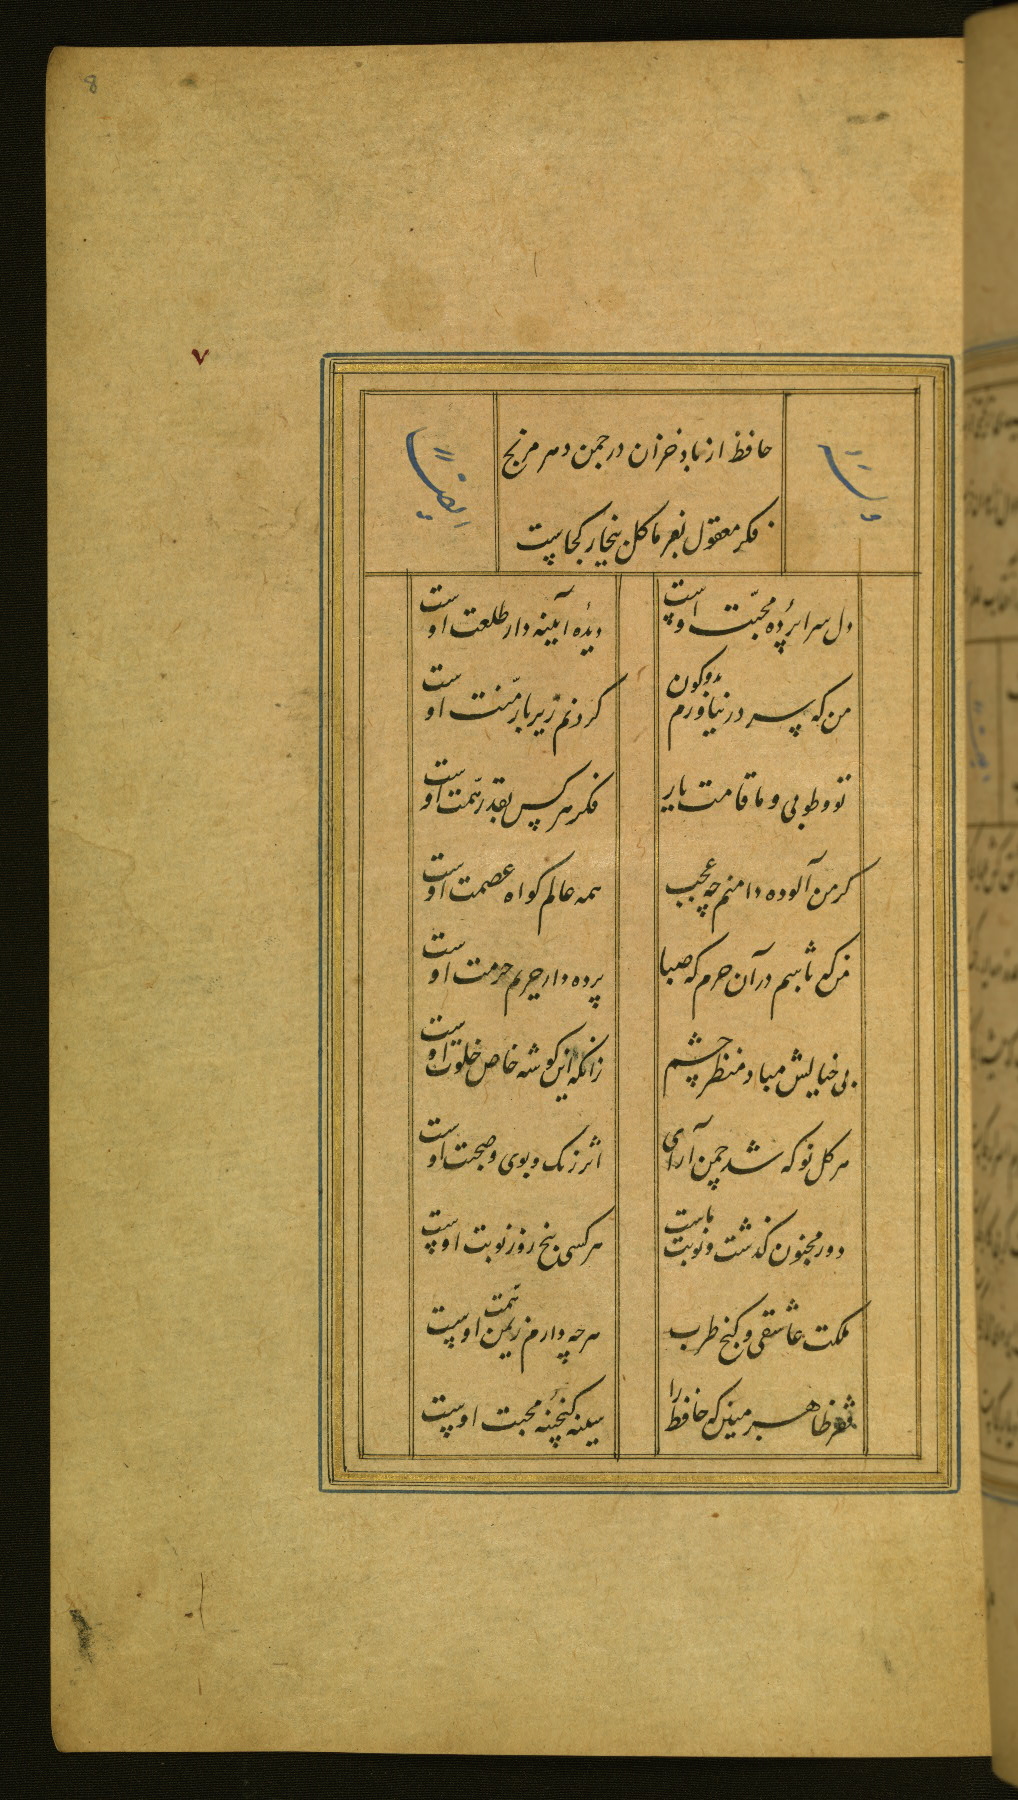 8
۷
حافظ از باد خزان در چمن دهر مرنج
فکر معقول بفرما گل بیخار کجاست
وله
ایضاً
دل سراپردهٔ محبّت اوست
دیدهٔ آیینه دار طلعت اوست
من که سر در نیاورم بدو کون
گردنم زیر بار منّت اوست
تو و طوبی و ما و قامت یار
فکر هر کس بقدر همّت اوست
گر من آلوده دامنم چه عجب
همه عالم گواه عصمت اوست
من که باشم در آن حرم که صبا
پرده دار حریم حرمت اوست
بی خیالش مباد منظر چشم
زانکه این گوشه خاص خلوت اوست
هر گل نو که شد چمن آرای
اثر رنک و بوی و صحبت اوست
دور مجنون گذشت و نوبت ماست
هر کسی پنج روز نوبت اوست
ملکت عاشقی و گنج طرب
هر چه دارم ز یمن همّت اوست
فقر ظاهر مبین که حافظ را
سینه گنجینهٔ محبت اوست